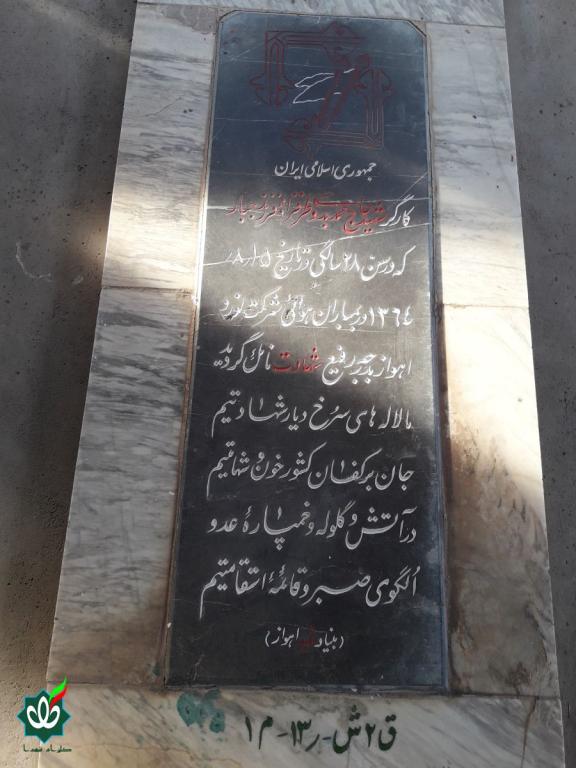 جمهوری اسلامی ایران
کارگر شهید حاج
که در سن ۲۸ سالگی در تاریخ
۱۳۶۴ در بمباران هوائی شرکت نورد
اهواز بدرجه رفیع شهادت نائل گردید
ما لاله های سرخ دیار شهادتیم
جان بر کفان کشور خون و شهامتیم
در آتش و گلوله و خمپارهٔ عدو
الگوی صبر و قائمهٔ استقامتیم
(بنیاد شهید اهواز)
ق۲ش-ر۱۳-م۱